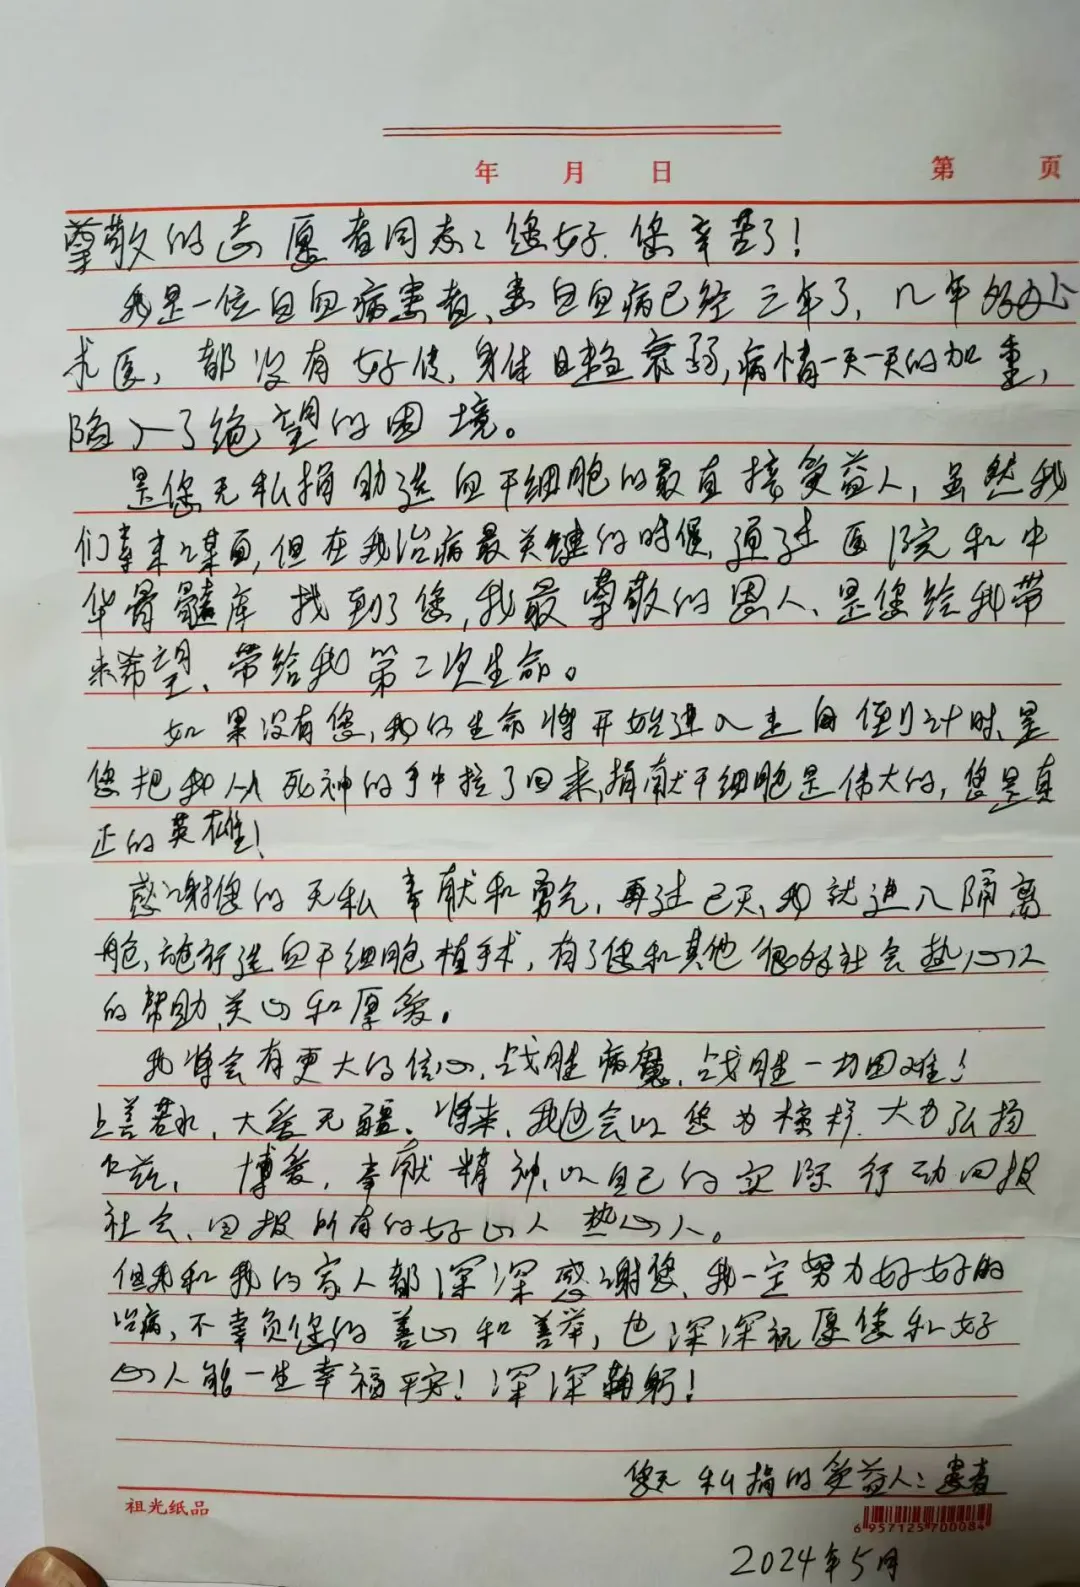 年 月 日 第 页
尊敬的志愿者同志：您好.您辛苦了！
我是一位白血病患者、患白血病已经三年了，几年的
求医，都没有好转，身体日趋衰弱，病情一天一天的加重，
陷入了绝望的困境。
是您无私捐助造血干细胞的最直接受益人，虽然我
们素未谋面，但在我治病最关键的时候，通过医院和中
华骨髓库找到了您，我最尊敬的恩人、是您给我带
来希望、带给我第二次生命。
如果没有您，我的生命将开始进入倒计时、是
您把我从死神的手中拉了回来，捐献干细胞是伟大的，您是真
正的英雄！
感谢您的无私奉献和勇气，再过七天，我就进入隔离
舱，施行造血干细胞植手术，有了您和其他很多好社会热心人
的帮助、关心和厚爱。
我将会有更大的信心，战胜病魔，战胜一切困难！
上善若水，大爱无疆。将来，我也会以您为榜样.大力弘扬
仁慈，博爱，奉献精神，以自己的实际行动回报
社会、回报所有的好心人热心人。
但我和我的家人都深深感谢您，我一定努力好好的
治病，不辜负您的善心和善举，也深深祝愿您和好
心人能一生幸福平安！深深鞠躬！
您无私捐的受益人：患者
祖光纸品
6 957125 700084
2024年5月